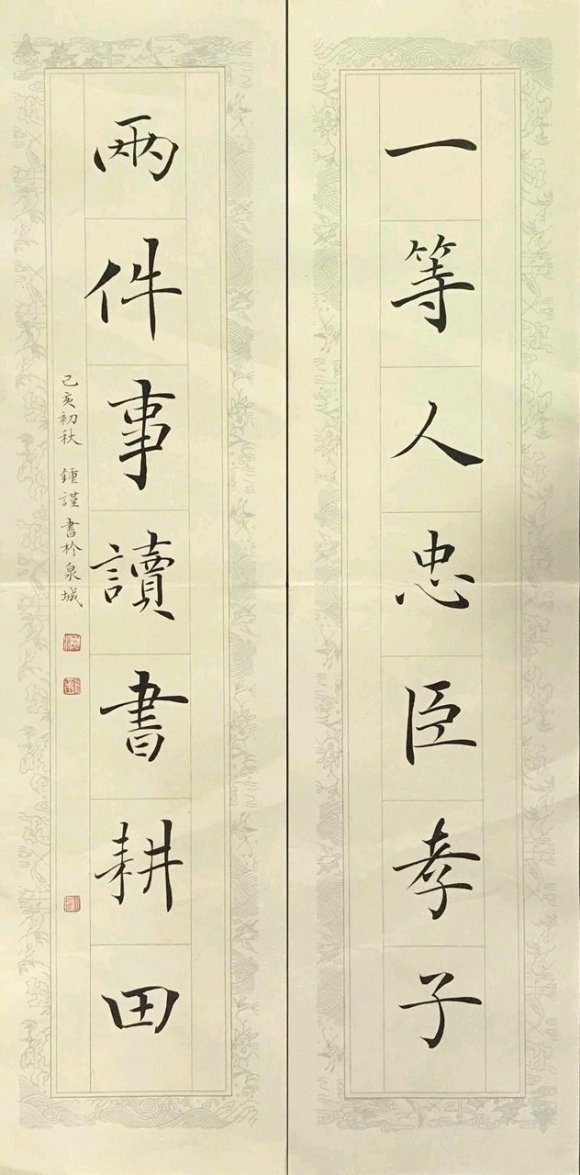 一等人忠臣孝子
兩件事讀書耕田
己亥初秋 鍾謹書於泉城